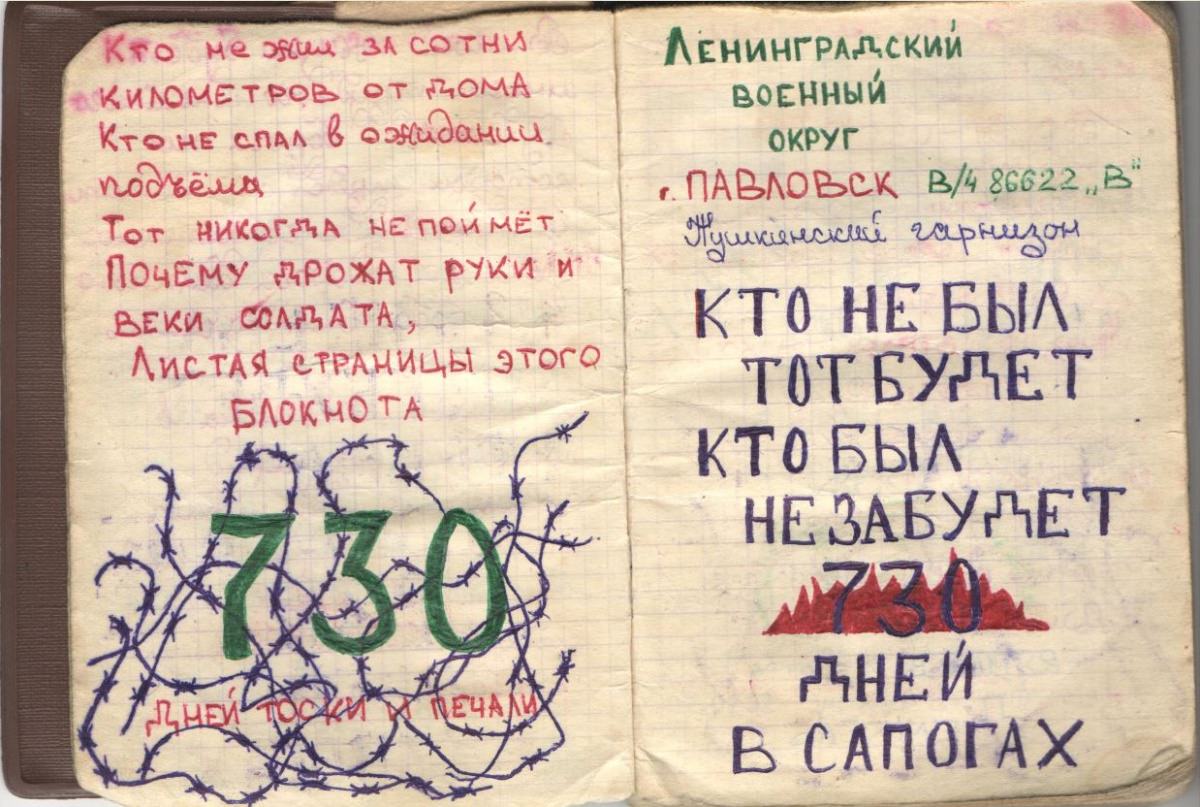 Кто не жил за сотни
километров от дома
Кто не спал в ожидании
подъёма
Тот никогда не поймёт
Почему дрожат руки и
веки солдата,
Листая страницы этого
блокнота
730
дней тоски и печали
Ленинградский
военный
округ
г. ПАВЛОВСК В/Ч 86622 „В"
Пушкинский гарнизон
КТО НЕ БЫЛ
ТОТ БУДЕТ
КТО БЫЛ
НЕ ЗАБУДЕТ
730
ДНЕЙ
В САПОГАХ